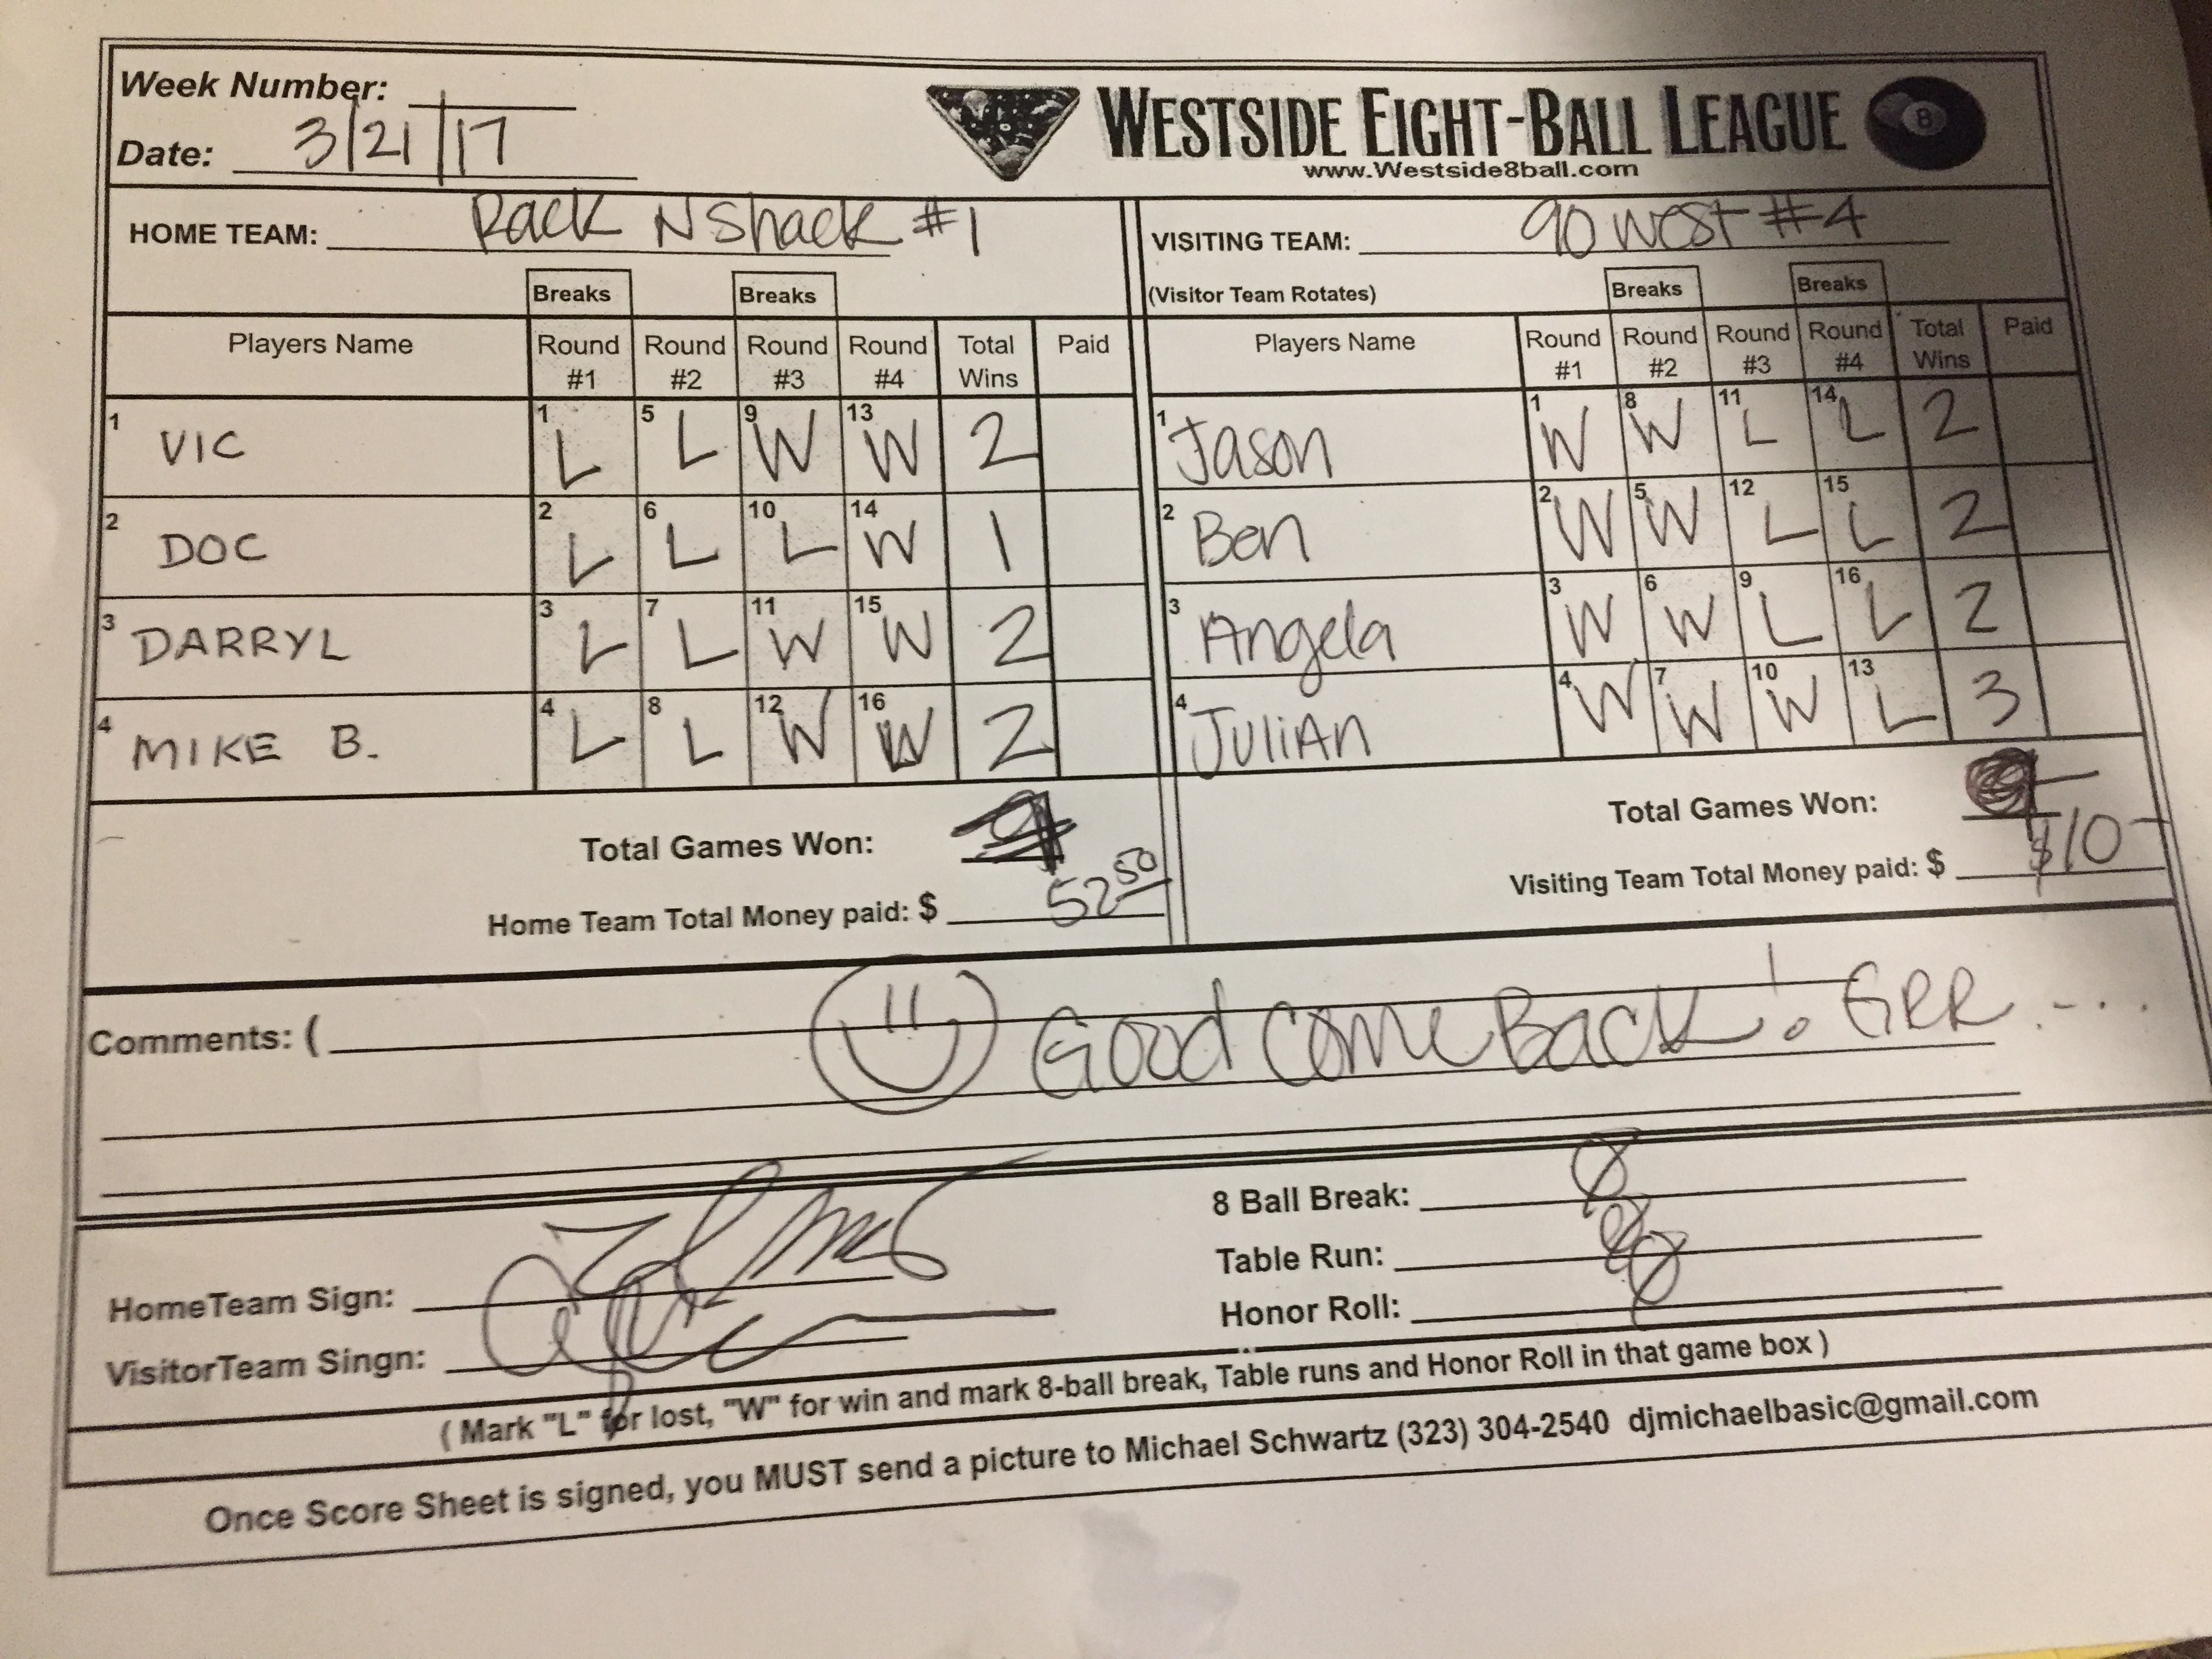 Week Number:
Date: 3/21/17
WESTSIDE EIGHT-BALL LEAGUE 8
www.Westside8ball.com
HOME TEAM: Rack N Shack #1
VISITING TEAM: 90 West #4
Breaks Breaks
(Visitor Team Rotates) Breaks Breaks
Players Name Round #1 Round #2 Round #3 Round #4 Total Wins Paid
1 VIC 1 L 5 L 9 W 13 W 2
2 DOC 2 L 6 L 10 L 14 W 1
3 DARRYL 3 L 7 L 11 W 15 W 2
4 MIKE B. 4 L 8 L 12 W 16 W 2
Total Games Won:
Home Team Total Money paid: $ 52 50
Players Name Round #1 Round #2 Round #3 Round #4 Total Wins Paid
1 Jason 1 W 8 W 11 L 14 L 2
2 Ben 2 W 5 W 12 L 15 L 2
3 Angela 3 W 6 W 9 L 16 L 2
4 JuliAn 4 W 7 W 10 W 13 L 3
Total Games Won:
Visiting Team Total Money paid: $ $10
Comments: ( Good Come Back! GRR.....
8 Ball Break:
Table Run:
Honor Roll:
HomeTeam Sign:
VisitorTeam Singn:
( Mark "L" for lost, "W" for win and mark 8-ball break, Table runs and Honor Roll in that game box )
Once Score Sheet is signed, you MUST send a picture to Michael Schwartz (323) 304-2540 djmichaelbasic@gmail.com